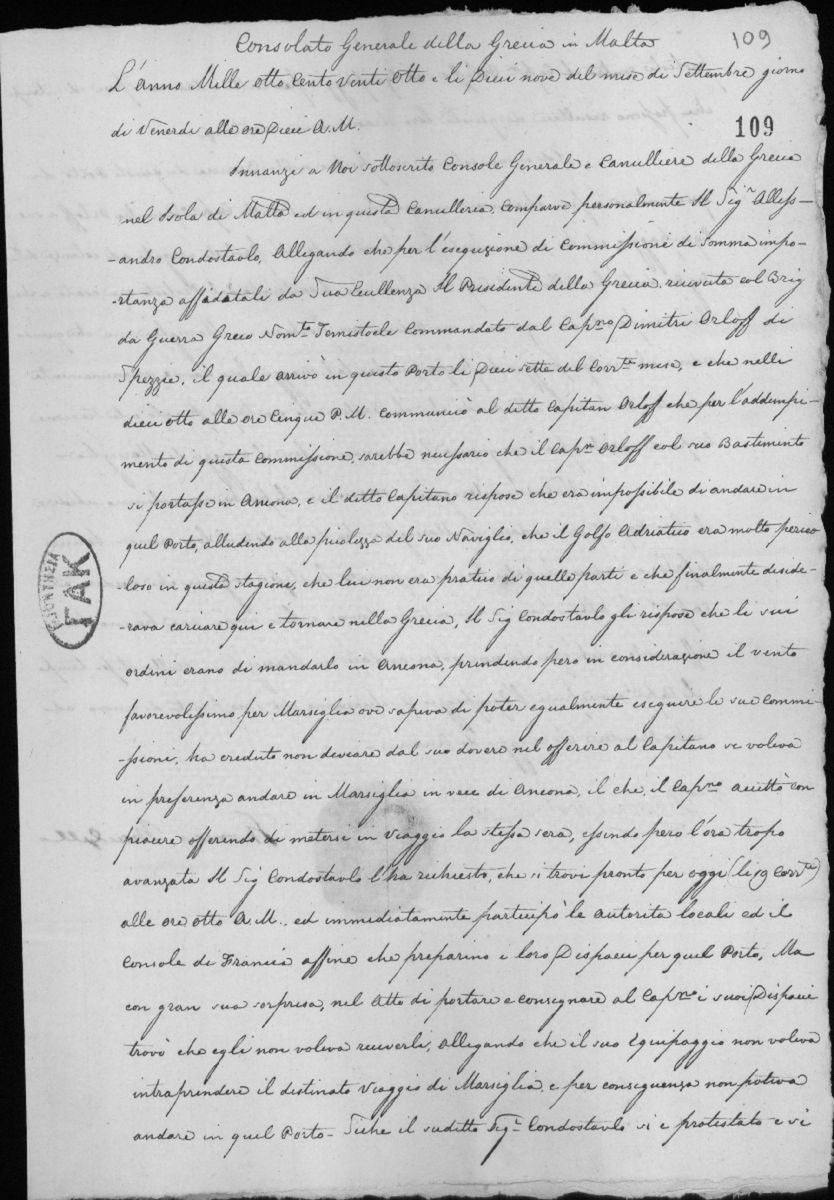 109
Consolato Generale della Grecia in Malta
L'anno Mille otto Cento Venti Otto e li Dieci nove del mese di Settembre giorno
di Venerdi alle ore Dieci A.M.
109
Innanzi a Noi sottoscrito Console Generale e Cancelliere della Grecia
nel Isola di Malta ed in questa Cancelleria, Comparve personalmente Il Sigr Aless-
-andro Condostavlo, Allegando che per l'esequzione di Commissione di somma impo-
-rtanza affidatali da Sua Ecellenza Il Presidente della Grecia, ricevuta col Brig
da Guerra Greco Nomto Temistocle Commandato dal Capno Dimitri Orloff di
Spezzie, il quale arrivò in questo Porto li Dieci sette del Corrte mese, e che nelli
dieci otto alle ore Cinque P.M. Communicò al ditto Capitan Orloff che per l'addempi-
mento di questa Commissione, sarebbe necissario che il Capn Orloff col suo Bastimento
si portasse in Ancona, e il ditto Capitano rispose che era impossibile di andare in
quel Porto, alludendo alla picolezza del suo Naviglio, che il Golfo Adriatico era molto perico
loso in questa stagione, che lui non era pratico di quelle parti e che finalmente deside-
-rava caricare qui e tornare nella Grecia, Il Sig Condostavlo gli rispose che li sui
ordini erano di mandarlo in Ancona, prindendo pero in considerazione il vento
favorevolissimo per Marsiglia ove sapeva di poter egualmente eseguire le sue Commi-
-ssioni, ha creduto non deviare dal suo dovere nel offerire al Capitano se voleva
in preferenza andare in Marsiglia in vece di Ancona, il che, il Capno accittò con
piacere offerendo di metersi in viaggio la stessa sera, essindo pero l'ora tropo
avanzata Il Sig Condostavlo l'ha richiesto, che si trovi pronto per oggi (li 19 Corrte)
alle ore Otto A.M., ed immediatamente participò le autorita locali ed il
Console di Francia affine che preparino i loro Dispaci per quel Porto, Ma
con gran sua sorpresa, nel Atto di portare e consegnare al Capno i suoi Dispaci
trovò che egli non voleva riceverli, allegando che il suo Equipaggio non voleva
intraprendere il distinato Viaggio di Marsiglia, e per conseguenza non poteva
andare in quel Porto - Siche il suditto Sigr Condostavlo si e protestato e si
ΓΑΚ